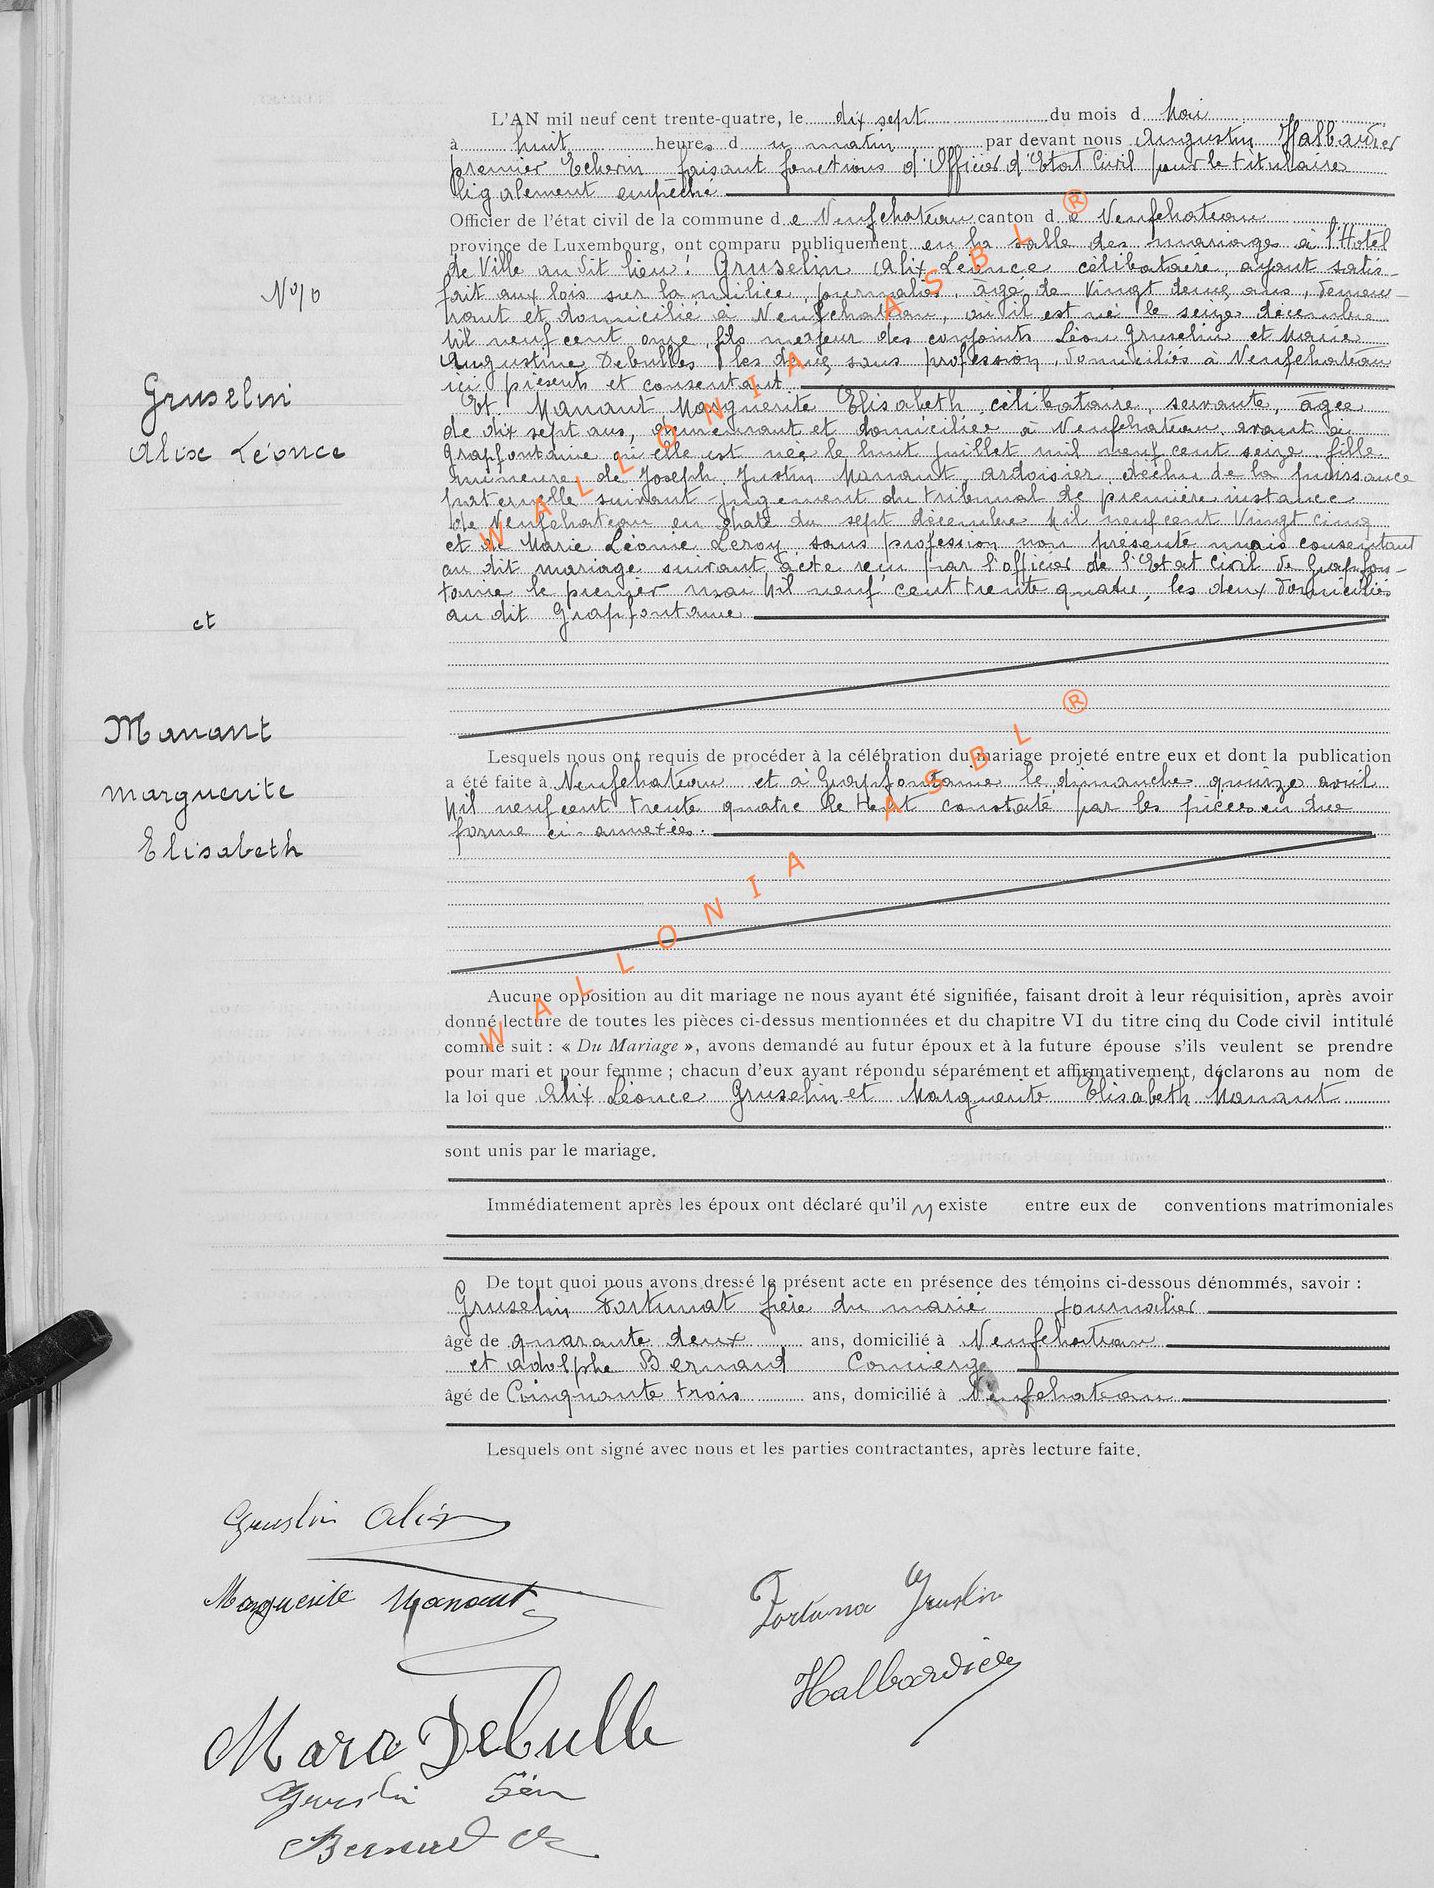 L'AN mil neuf cent trente-quatre, le dix sept du mois d Mai
à huit heures du matin par devant nous Augustin Halbardier
premier Echevin faisant fonctions d'Officier d'Etat Civil pour le titulaire
légalement empêché
Officier de l'état civil de la commune de Neufchateau canton de Neufchateau
province de Luxembourg, ont comparu publiquement en la salle des mariages à l'Hotel
de Ville au dit lieu : Gruselin Alix Léonce célibataire, ayant satis-
fait aux lois sur la milice, journalier, âgé de Vingt deux ans, demeu-
rant et domicilié à Neufchateau, où il est né le seize décembre
Mil neuf cent onze, fils majeur des conjoints Léon Gruselin et Marie
Augustine Debulles les deux sans profession, domiciliés à Neufchateau
ici présents et consentant
Et Manant Marguerite Elisabeth célibataire, servante, âgée
de dix sept ans, demeurant et domiciliée à Neufchateau avant à
Grapfontaine où elle est née le huit juillet mil neuf cent seize fille
mineure de Joseph Justin Manant ardoisier, déchu de la puissance
paternelle suivant jugement du tribunal de première instance
de Neufchateau en date du sept décembre Mil neuf cent Vingt cinq
et de Marie Léonie Leroy sans profession non présente mais consentant
au dit mariage suivant acte reçu par l'officier de l'Etat Civil de Grapfon-
taine le premier mai Mil neuf cent trente quatre, les deux domiciliés
au dit Grapfontaine
No 10
Gruselin
Alix Léonce
et
Manant
Marguerite
Elisabeth
Lesquels nous ont requis de procéder à la célébration du mariage projeté entre eux et dont la publication
a été faite à Neufchateau et à Grapfontaine le dimanche quinze avril
Mil neuf cent trente quatre le tout constaté par les pièces en due
forme ci-annexées.
Aucune opposition au dit mariage ne nous ayant été signifiée, faisant droit à leur réquisition, après avoir
donné lecture de toutes les pièces ci-dessus mentionnées et du chapitre VI du titre cinq du Code civil intitulé
comme suit : « Du Mariage », avons demandé au futur époux et à la future épouse s'ils veulent se prendre
pour mari et pour femme ; chacun d'eux ayant répondu séparément et affirmativement, déclarons au nom de
la loi que Alix Léonce Gruselin et Marguerite Elisabeth Manant
sont unis par le mariage.
Immédiatement après les époux ont déclaré qu'il n'existe entre eux de conventions matrimoniales
De tout quoi nous avons dressé le présent acte en présence des témoins ci-dessous dénommés, savoir :
Gruselin Fortunat frère du marié journalier
âgé de quarante deux ans, domicilié à Neufchateau
et Adolphe Bernard Concierge
âgé de Cinquante trois ans, domicilié à Neufchateau
Lesquels ont signé avec nous et les parties contractantes, après lecture faite.
Gruslin Alix
Marguerite Manant
Fortuna Gruslin
Halbardier
Marie Debulle
Gruslin Léon
Bernard
WALLONIA ASBL ®
WALLONIA ASBL ®